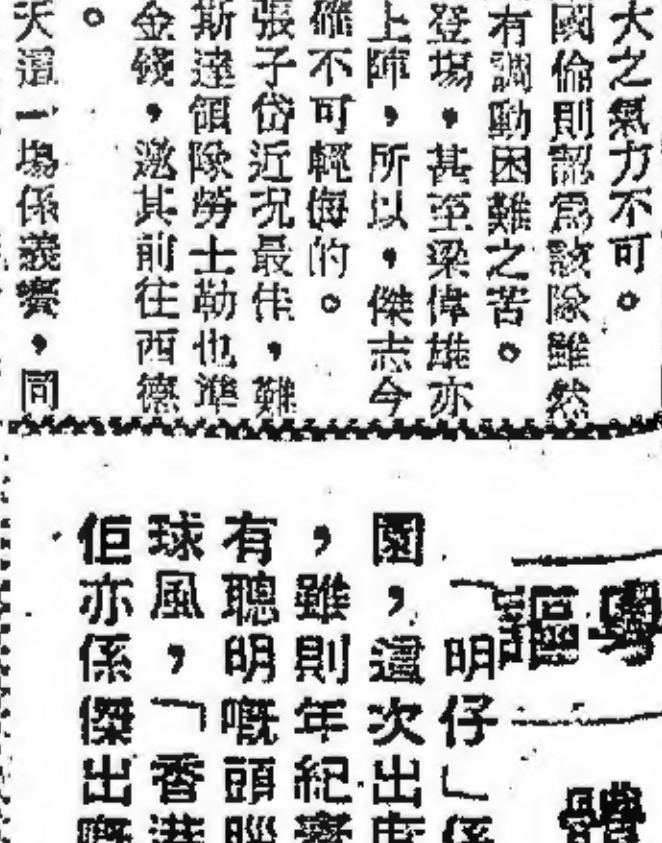 大之氣力不可。
國倫則認爲該隊雖然
有調動困難之苦。
登場，甚至梁偉雄亦
上陣，所以，傑志今
確不可輕侮的。
張子岱近況最佳，難
斯達領隊勞士勒也準
金錢，邀其前往西德
。
天這一場係義賽，同
「明仔」係
園，這次出
，雖則年紀
有聰明嘅頭腦
球風，「香港
佢亦係傑出嘅